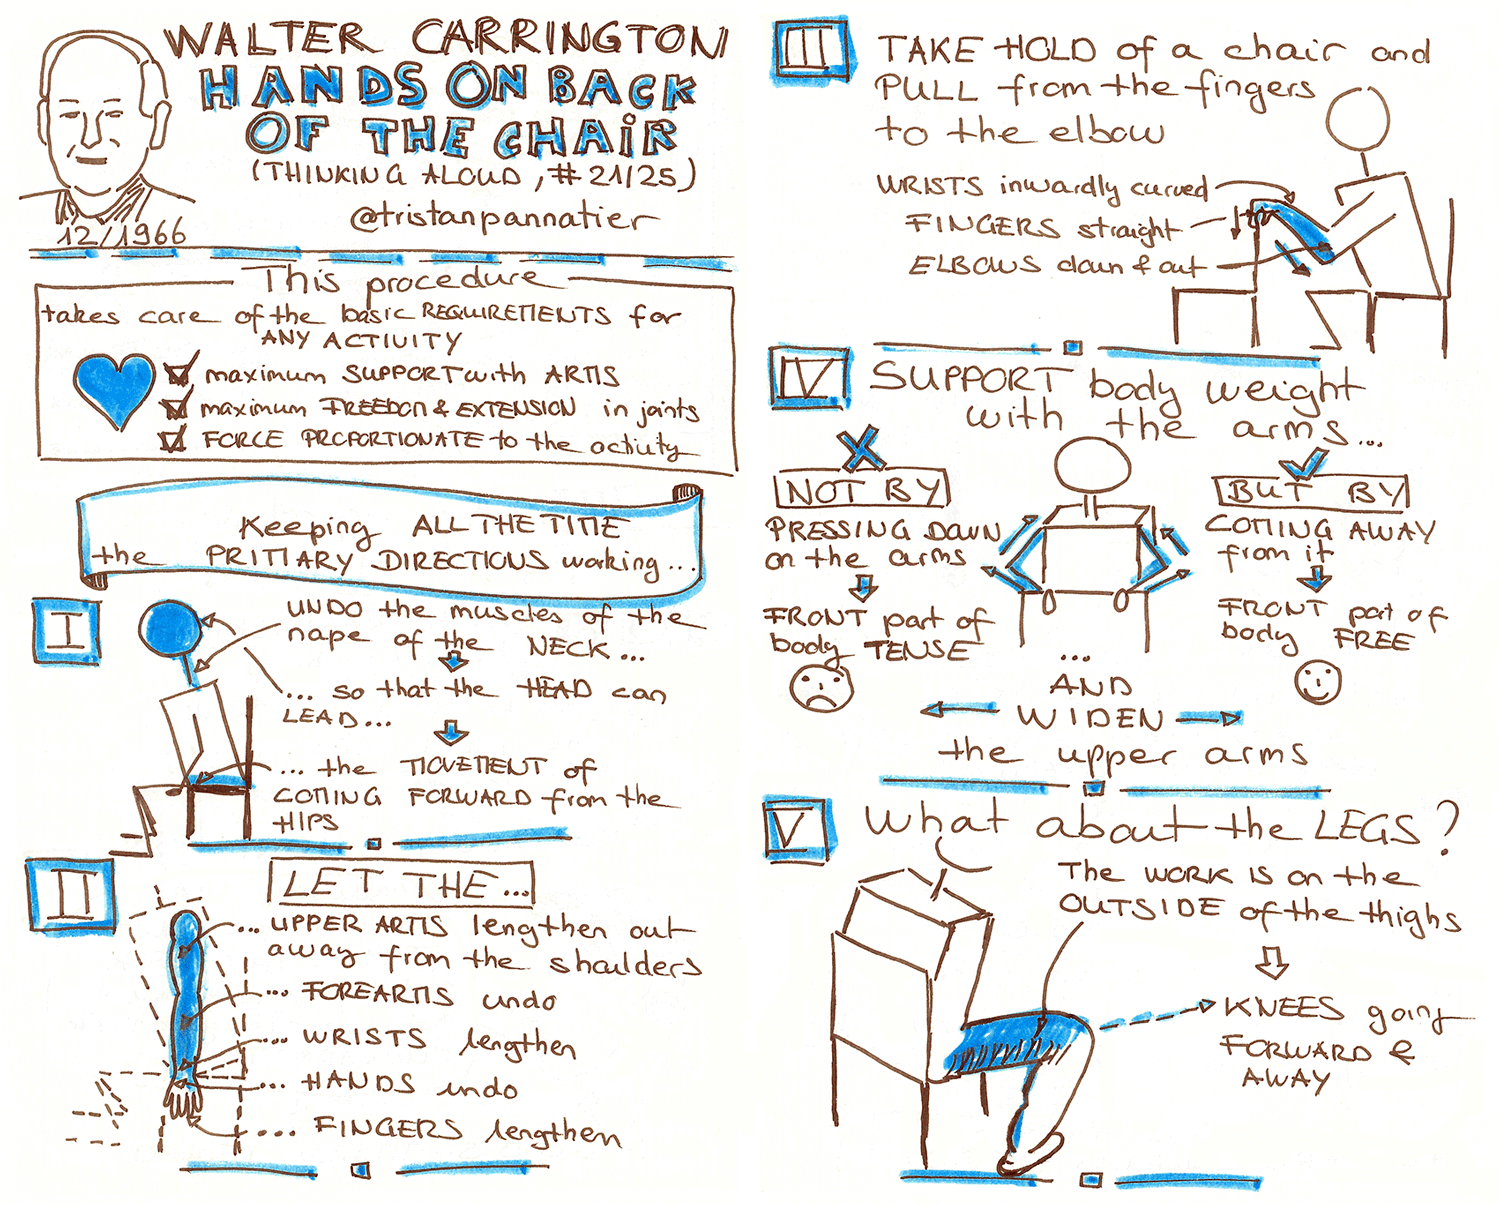 WALTER CARRINGTON
HANDS ON BACK
OF THE CHAIR
(THINKING ALOUD, # 21/25)
@tristanpannatier
12/1966
This procedure
takes care of the basic REQUIREMENTS for
ANY ACTIVITY
maximum SUPPORT with ARMS
maximum FREEDOM & EXTENSION in joints
FORCE PROPORTIONATE to the activity
Keeping ALL THE TIME
the PRIMARY DIRECTIONS working...
I
UNDO the muscles of the
nape of the NECK...
... so that the HEAD can
LEAD...
... the MOVEMENT of
COMING FORWARD from the
HIPS
II
LET THE...
... UPPER ARMS lengthen out
away from the shoulders
... FOREARMS undo
... WRISTS lengthen
... HANDS undo
... FINGERS lengthen
III
TAKE HOLD of a chair and
PULL from the fingers
to the elbow
WRISTS inwardly curved
FINGERS straight
ELBOWS down & out
IV
SUPPORT body weight
with the arms...
NOT BY
PRESSING DOWN
on the arms
FRONT part of
body TENSE
BUT BY
COMING AWAY
from it
FRONT part of
body FREE
...
AND
WIDEN
the upper arms
V
What about the LEGS?
The WORK IS on the
OUTSIDE of the thighs
KNEES going
FORWARD &
AWAY